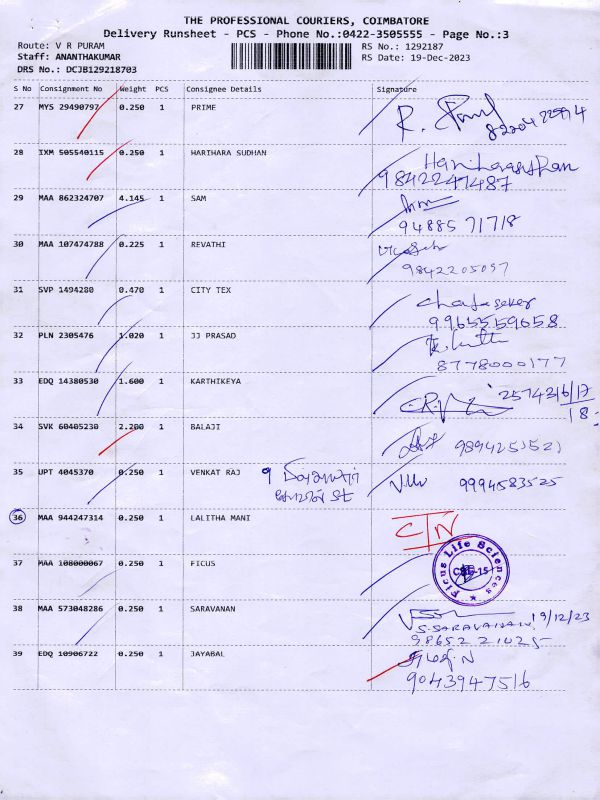 THE PROFESSIONAL COURIERS, COIMBATORE
Delivery Runsheet - PCS - Phone No.:0422-3505555 - Page No.:3
Route: V R PURAM
Staff: ANANTHAKUMAR
DRS No.: DCJB129218703
RS No.: 1292187
RS Date: 19-Dec-2023
S No Consignment No Weight PCS Consignee Details Signature
27 MYS 29490797 0.250 1 PRIME
28 IXM 505540115 0.250 1 HARIHARA SUDHAN
9842247487
29 MAA 862324707 4.145 1 SAM
94885 71718
30 MAA 107474788 0.225 1 REVATHI
9842205097
31 SVP 1494280 0.470 1 CITY TEX
9965559658
32 PLN 2305476 1.020 1 JJ PRASAD
8778000177
33 EDQ 14380530 1.600 1 KARTHIKEYA
34 SVK 60405230 2.200 1 BALAJI
9894253521
35 UPT 4045370 0.250 1 VENKAT RAJ 9
St
9994583525
36 MAA 944247314 0.250 1 LALITHA MANI
CIN
37 MAA 108000067 0.250 1 FICUS
Ficus Life Sciences
CBE-15
38 MAA 573048286 0.250 1 SARAVANAN
19/12/23
S.SARAVANAN
98652 21025
39 EDQ 10906722 0.250 1 JAYABAL
9043947516